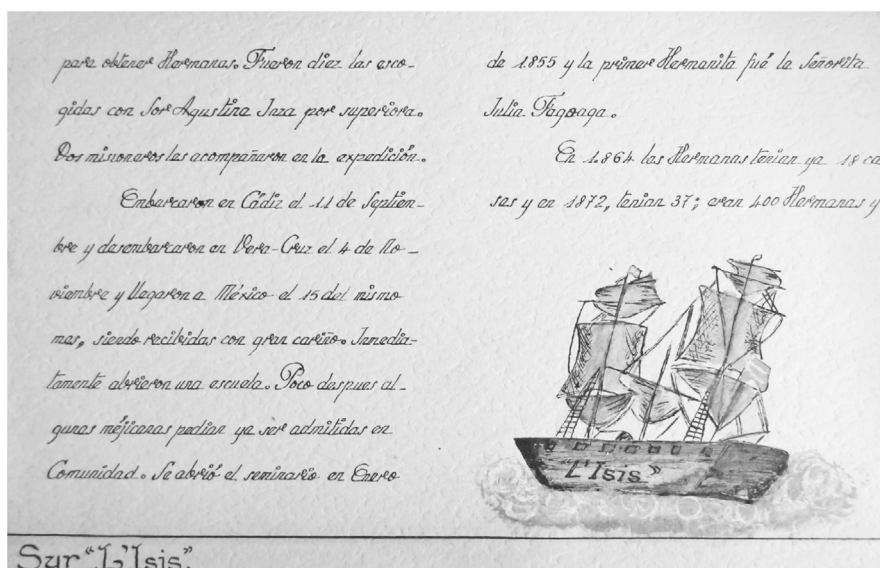 para obtener Hermanas. Fueron diez las esco-
gidas con Sor Agustina Inza por superiora.
Dos misioneros las acompañaron en la expedición.
Embarcaron en Cádiz el 11 de Septiem-
bre y desembarcaron en Vera-Cruz el 4 de No-
viembre y llegaron a México el 15 del mismo
mes, siendo recibidas con gran cariño. Inmedia-
tamente abrieron una escuela. Poco despues al-
gunas méjicanas pedian ya ser admitidas en
Comunidad. Se abrió el seminario en Enero
de 1.855 y la primer Hermanita fué la Señorita
Julia Fagoaga.
En 1.864 las Hermanas tenian ya 18 ca
sas y en 1872, tenian 37; eran 400 Hermanas y
"L'Isis"
Sur "L'Isis".